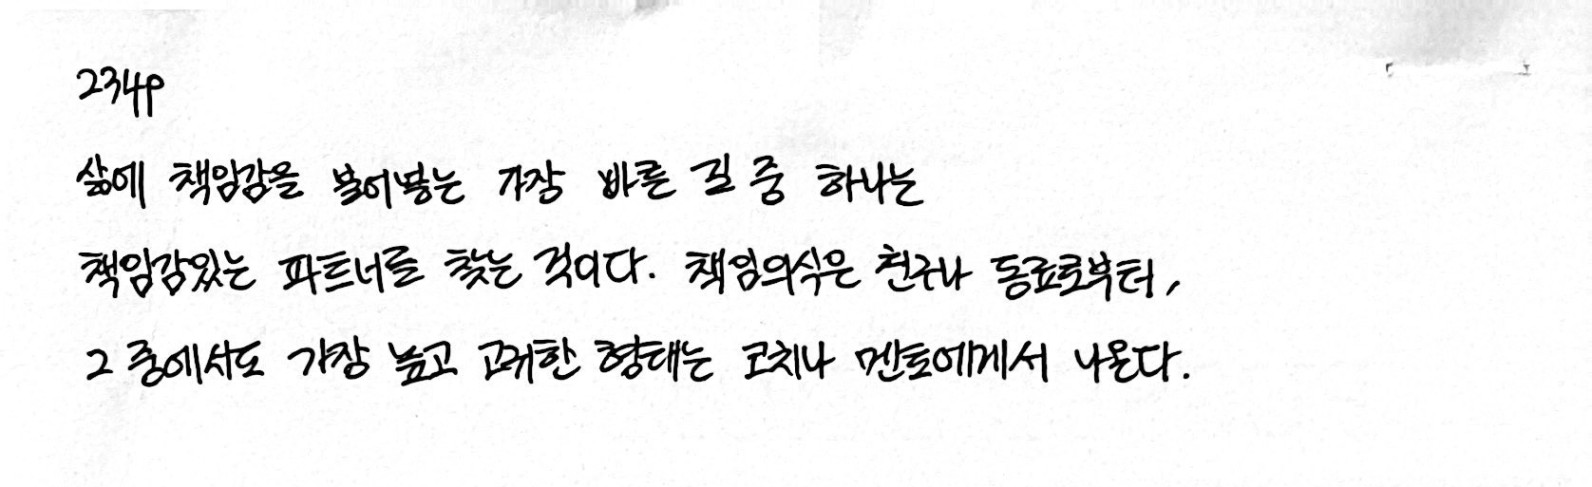 234p
삶에 책임감을 불어넣는 가장 빠른 길 중 하나는
책임감있는 파트너를 찾는 것이다. 책임의식은 친구나 동료로부터,
그 중에서도 가장 높고 고귀한 형태는 코치나 멘토에게서 나온다.